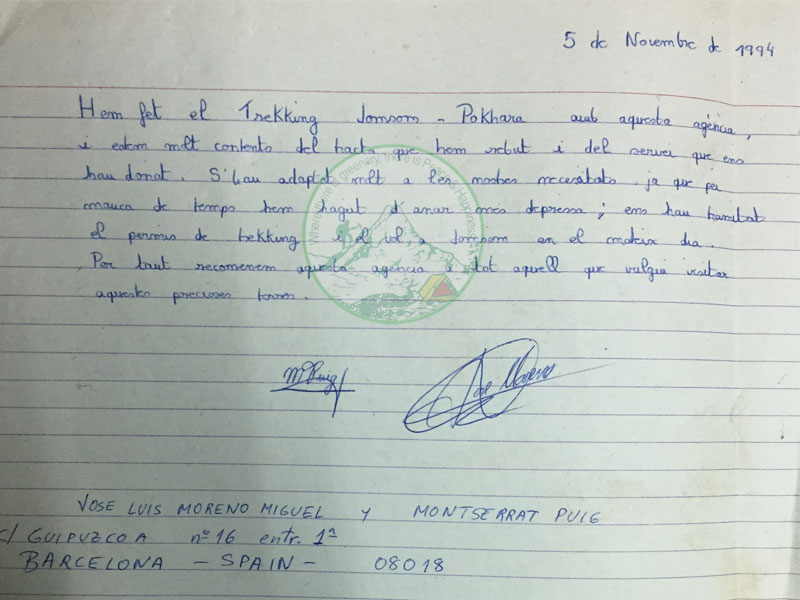 5 de Novembre de 1994
Hem fet el Trekking Jomsom - Pokhara amb aquesta agència,
i estem mlt contents del tracte que hem rebut i del servei que ens
han donat. S'han adaptat mlt a les nostres necesitats, ja que per
manca de temps hem hagut d'anar més depressa; ens han tramitat
el permís de trekking i el vol, a Jomsom en el mateix dia.
Per tant recomenem aquesta agència a tot aquell que vulgui visitar
aquestes precioses terres.
M Puig
Jose Moreno
JOSE LUIS MORENO MIGUEL Y MONTSERRAT PUIG
c/ GUIPUZCOA nº 16 entr. 1ª
BARCELONA - SPAIN - 08018